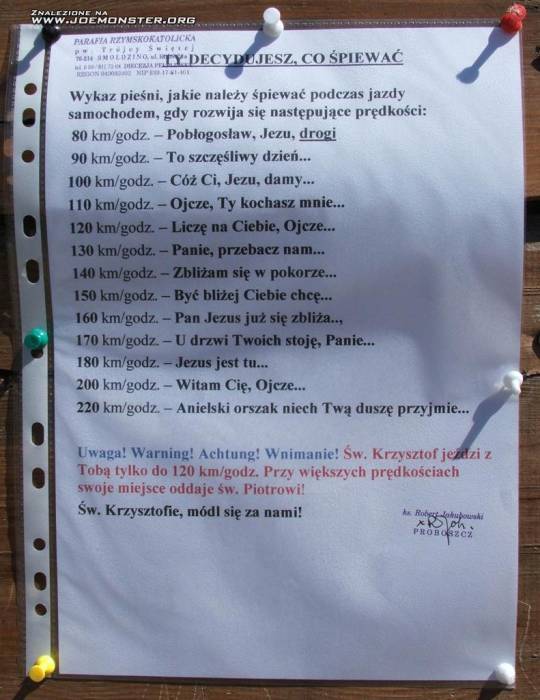 ZNALEZIONE NA
WWW.JOEMONSTER.ORG
PARAFIA RZYMSKOKATOLICKA
p.w. Trójcy Świętej
76-214 SMOŁDZINO
TY DECYDUJESZ, CO ŚPIEWAĆ
Wykaz pieśni, jakie należy śpiewać podczas jazdy
samochodem, gdy rozwija się następujące prędkości:
80 km/godz. – Pobłogosław, Jezu, drogi
90 km/godz. – To szczęśliwy dzień...
100 km/godz. – Cóż Ci, Jezu, damy...
110 km/godz. – Ojcze, Ty kochasz mnie...
120 km/godz. – Liczę na Ciebie, Ojcze...
130 km/godz. – Panie, przebacz nam...
140 km/godz. – Zbliżam się w pokorze...
150 km/godz. – Być bliżej Ciebie chcę...
160 km/godz. – Pan Jezus już się zbliża..,
170 km/godz. – U drzwi Twoich stoję, Panie...
180 km/godz. – Jezus jest tu...
200 km/godz. – Witam Cię, Ojcze...
220 km/godz. – Anielski orszak niech Twą duszę przyjmie...
Uwaga! Warning! Achtung! Wnimanie! Św. Krzysztof jeździ z
Tobą tylko do 120 km/godz. Przy większych prędkościach
swoje miejsce oddaje św. Piotrowi!
Św. Krzysztofie, módl się za nami!
ks. Robert Jakubowski
PROBOSZCZ